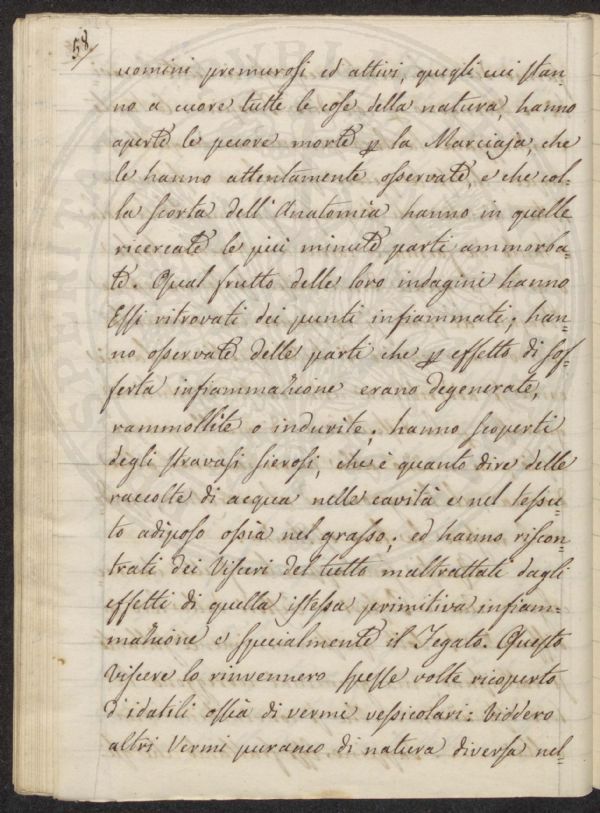 58/
uomini premurosi ed attivi, quegli cui stan=
no a cuore tutte le cose della natura, hanno
aperte le pecore morte p la Marciaja, che
le hanno attentamente osservate, e che col=
la scorta dell'Anatomia hanno in quelle
ricercate le più minute parti ammorba=
te. Qual frutto delle loro indagini hanno
Essi ritrovati dei punti infiammati; han=
no osservate delle parti che p effetto di sof=
ferta infiammazione erano degenerate,
rammollite o indurite; hanno scoperti
degli stravasi sierosi, che è quanto dire delle
raccolte di acqua nelle cavità e nel tessu=
to adiposo ossia nel grasso; ed hanno riscon=
trati dei Visceri del tutto maltrattati dagli
effetti di quella istessa primitiva infiam=
mazione e specialmente il Fegato. Questo
Viscere lo rinvennero spesse volte ricoperto
d'idatili ossia di vermi vessicolari: Viddero
altri Vermi puranco di natura diversa nel=